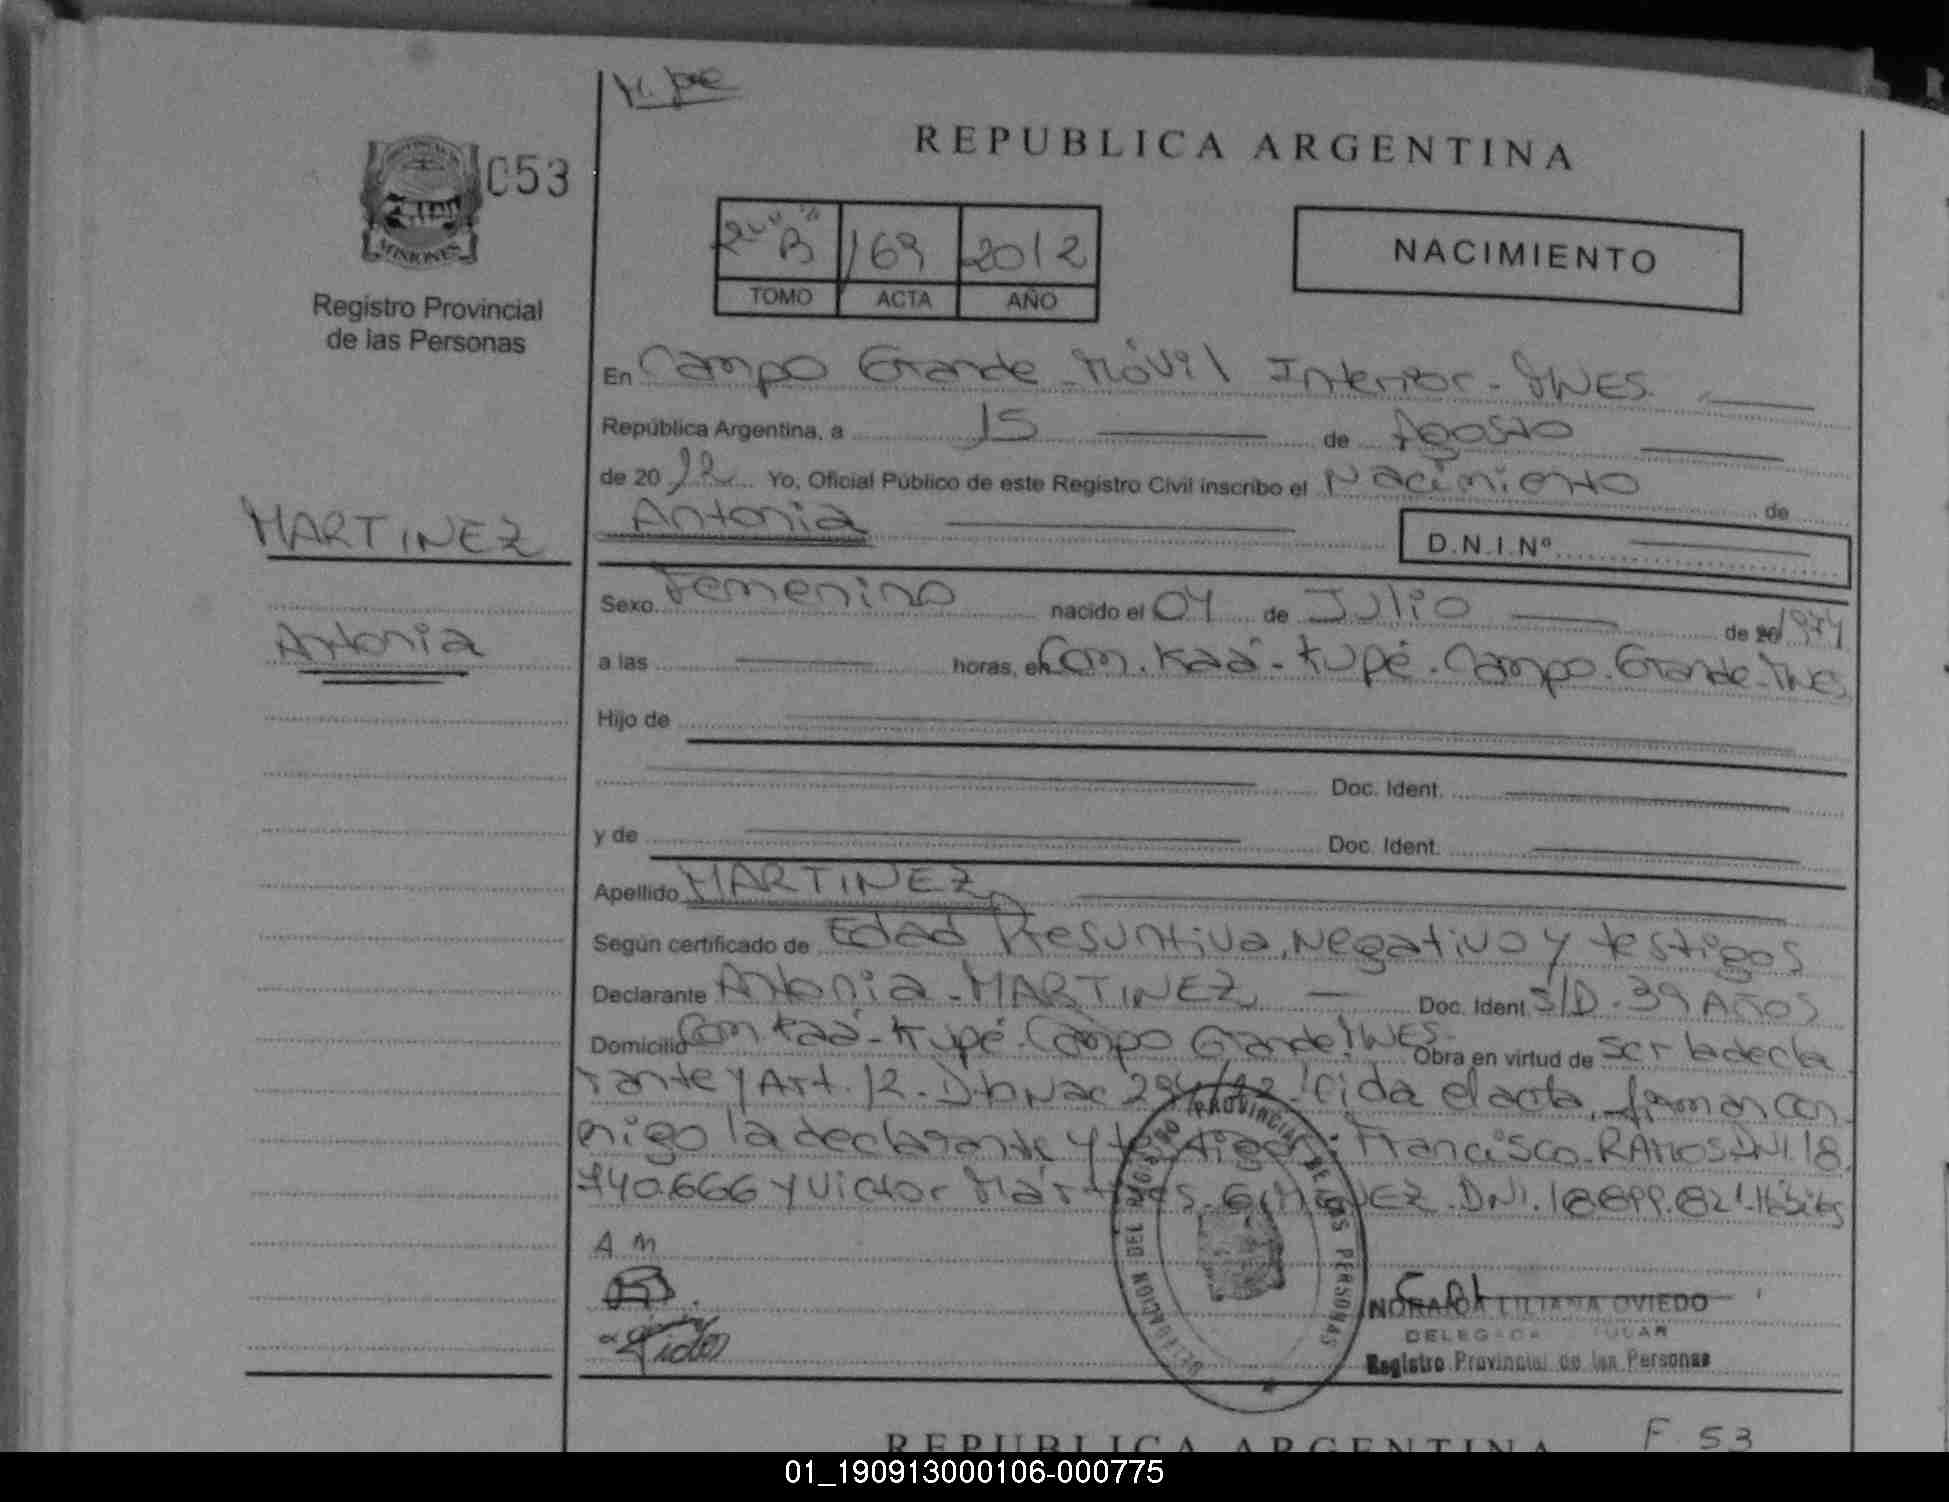 053
MISIONES
Registro Provincial
de las Personas
MARTINEZ
Antonia
REPUBLICA ARGENTINA
B 169 2012
TOMO ACTA AÑO
NACIMIENTO
En Campo Grande - Móvil Interior - MNES.
República Argentina, a 15 de Agosto
de 2012 Yo, Oficial Público de este Registro Civil inscribo el Nacimiento de
Antonia D.N.I.Nº
Sexo Femenino nacido el 04 de Julio de 20 1974
a las horas, en Com. Kaá - Kupé. Campo. Grande - MNES
Hijo de
Doc. Ident.
y de Doc. Ident.
Apellido MARTINEZ
Según certificado de Edad Presuntiva, Negativo y testigos
Declarante Antonia - MARTINEZ, Doc. Ident. S/D. 39 AÑOS
Domicilio Com Kaá - Kupé. Campo Grande MNES. Obra en virtud de ser la decla
rante y Art. 12. Dto Nac 294/12. Leida el acta, firman con
migo la declarante y testigos: Francisco. RAMOS DNI. 18.
740.666 y Victor GIMENEZ. DNI. 18899.821.
A M
DELEGACION DEL REGISTRO PROVINCIAL DE LAS PERSONAS
LILIANA OVIEDO
DELEGADA TITULAR
Registro Provincial de las Personas
REPUBLICA ARGENTINA
F 53
01_190913000106-000775